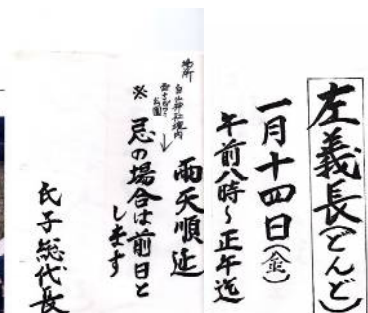 左義長(どんど)
一月十四日(金)
午前八時～正午迄
雨天順延
場所
白山神社境内
※忌の場合は前日と
します
氏子総代長